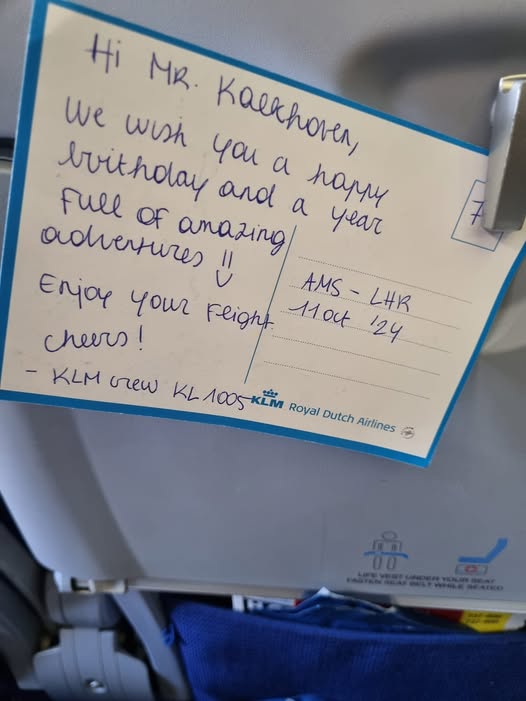 Hi MR. Kaekhoven,
We wish you a happy
birthday and a year
full of amazing
adventures !!
Enjoy your Fleight
cheers!
- KLM crew KL 1005
7
AMS - LHR
11 oct '24
KLM Royal Dutch Airlines
LIFE VEST UNDER YOUR SEAT
FASTEN SEAT BELT WHILE SEATED